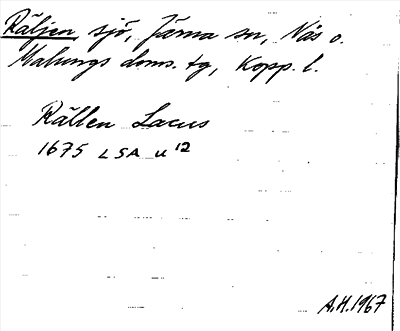 Räljen, sjö, Järna sn, Nås o.
Malungs doms. tg, Kopp. l.
Rällen Lacus
1675 LSA U 12
A.H. 1967